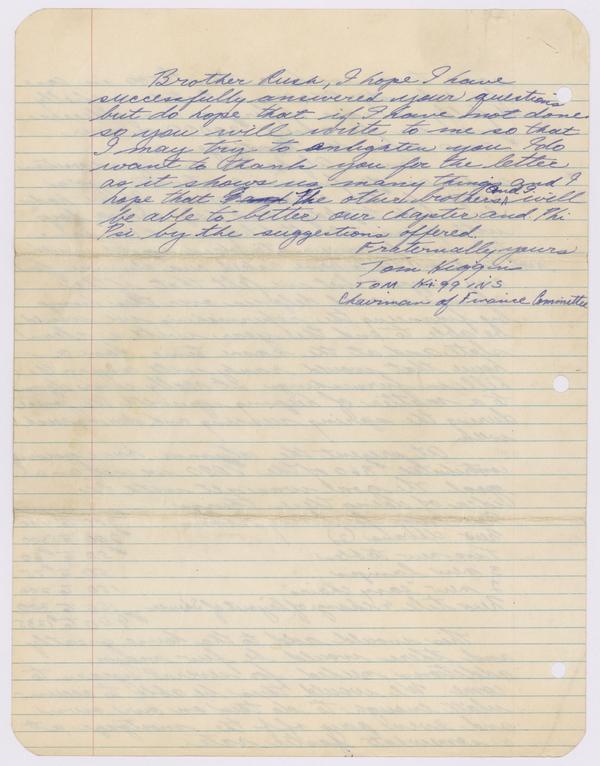 Brother Rush, I hope I have
successfully answered your questions
but do hope that if I have not done
so you will write to me so that
I may try to enlighten you. I do
want to thank you for the letter
as it shows us many things and I
hope that the other brothers and I will
be able to better our chapter and Phi
Psi by the suggestions offered.
Fraternally yours
Tom Higgins
TOM HiGGiNS
Chairman of Finance Committee